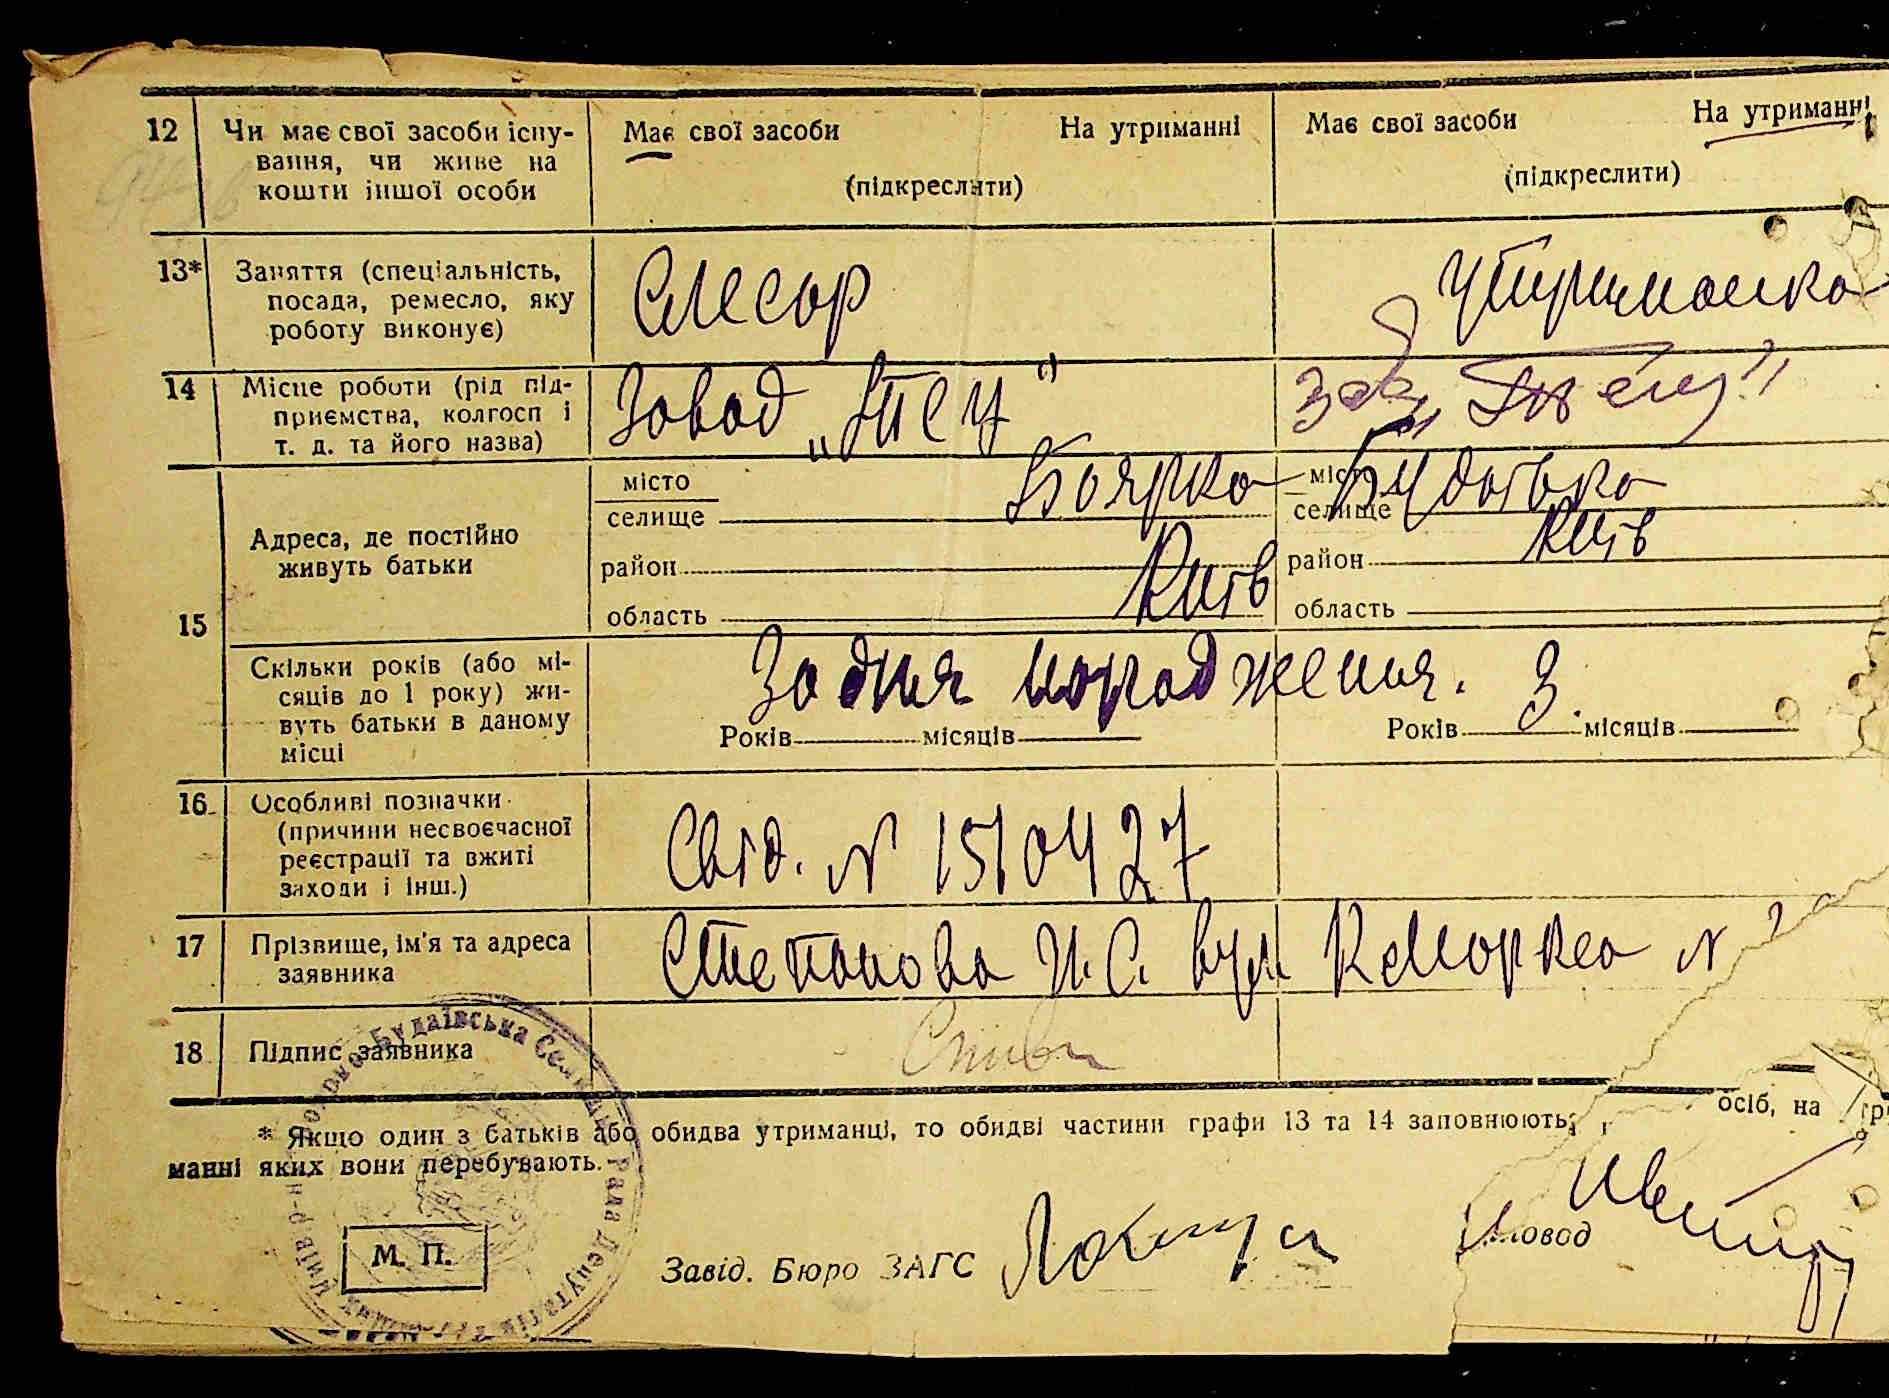 12 Чи має свої засоби існу- Має свої засоби На утриманні Має свої засоби На утриманні
вання, чи живе на
кошти іншої особи (підкреслити) (підкреслити)
13* Заняття (спеціальність, Слесар утриманка
посада, ремесло, яку
роботу виконує)
14 Місце роботи (рід під- Завод зав
приємства, колгосп і
т. д. та його назва)
15 Адреса, де постійно
живуть батьки
місто Боярка місто
селище селище
район район Київ
область Київ область
Скільки років (або мі- За дня народження. 3
сяців до 1 року) жи-
вуть батьки в даному
місці Років місяців Років місяців
16 Особливі позначки Свід. N 1510427
(причини несвоєчасної
реєстрації та вжиті
заходи і інш.)
17 Прізвище, ім'я та адреса Степанова вул N
заявника
18 Підпис заявника
* Якщо один з батьків або обидва утриманці, то обидві частини графи 13 та 14 заповнюють осіб, на
манні яких вони перебувають.
Будаївська Рада Депутатів
М. П.
Завід. Бюро ЗАГС